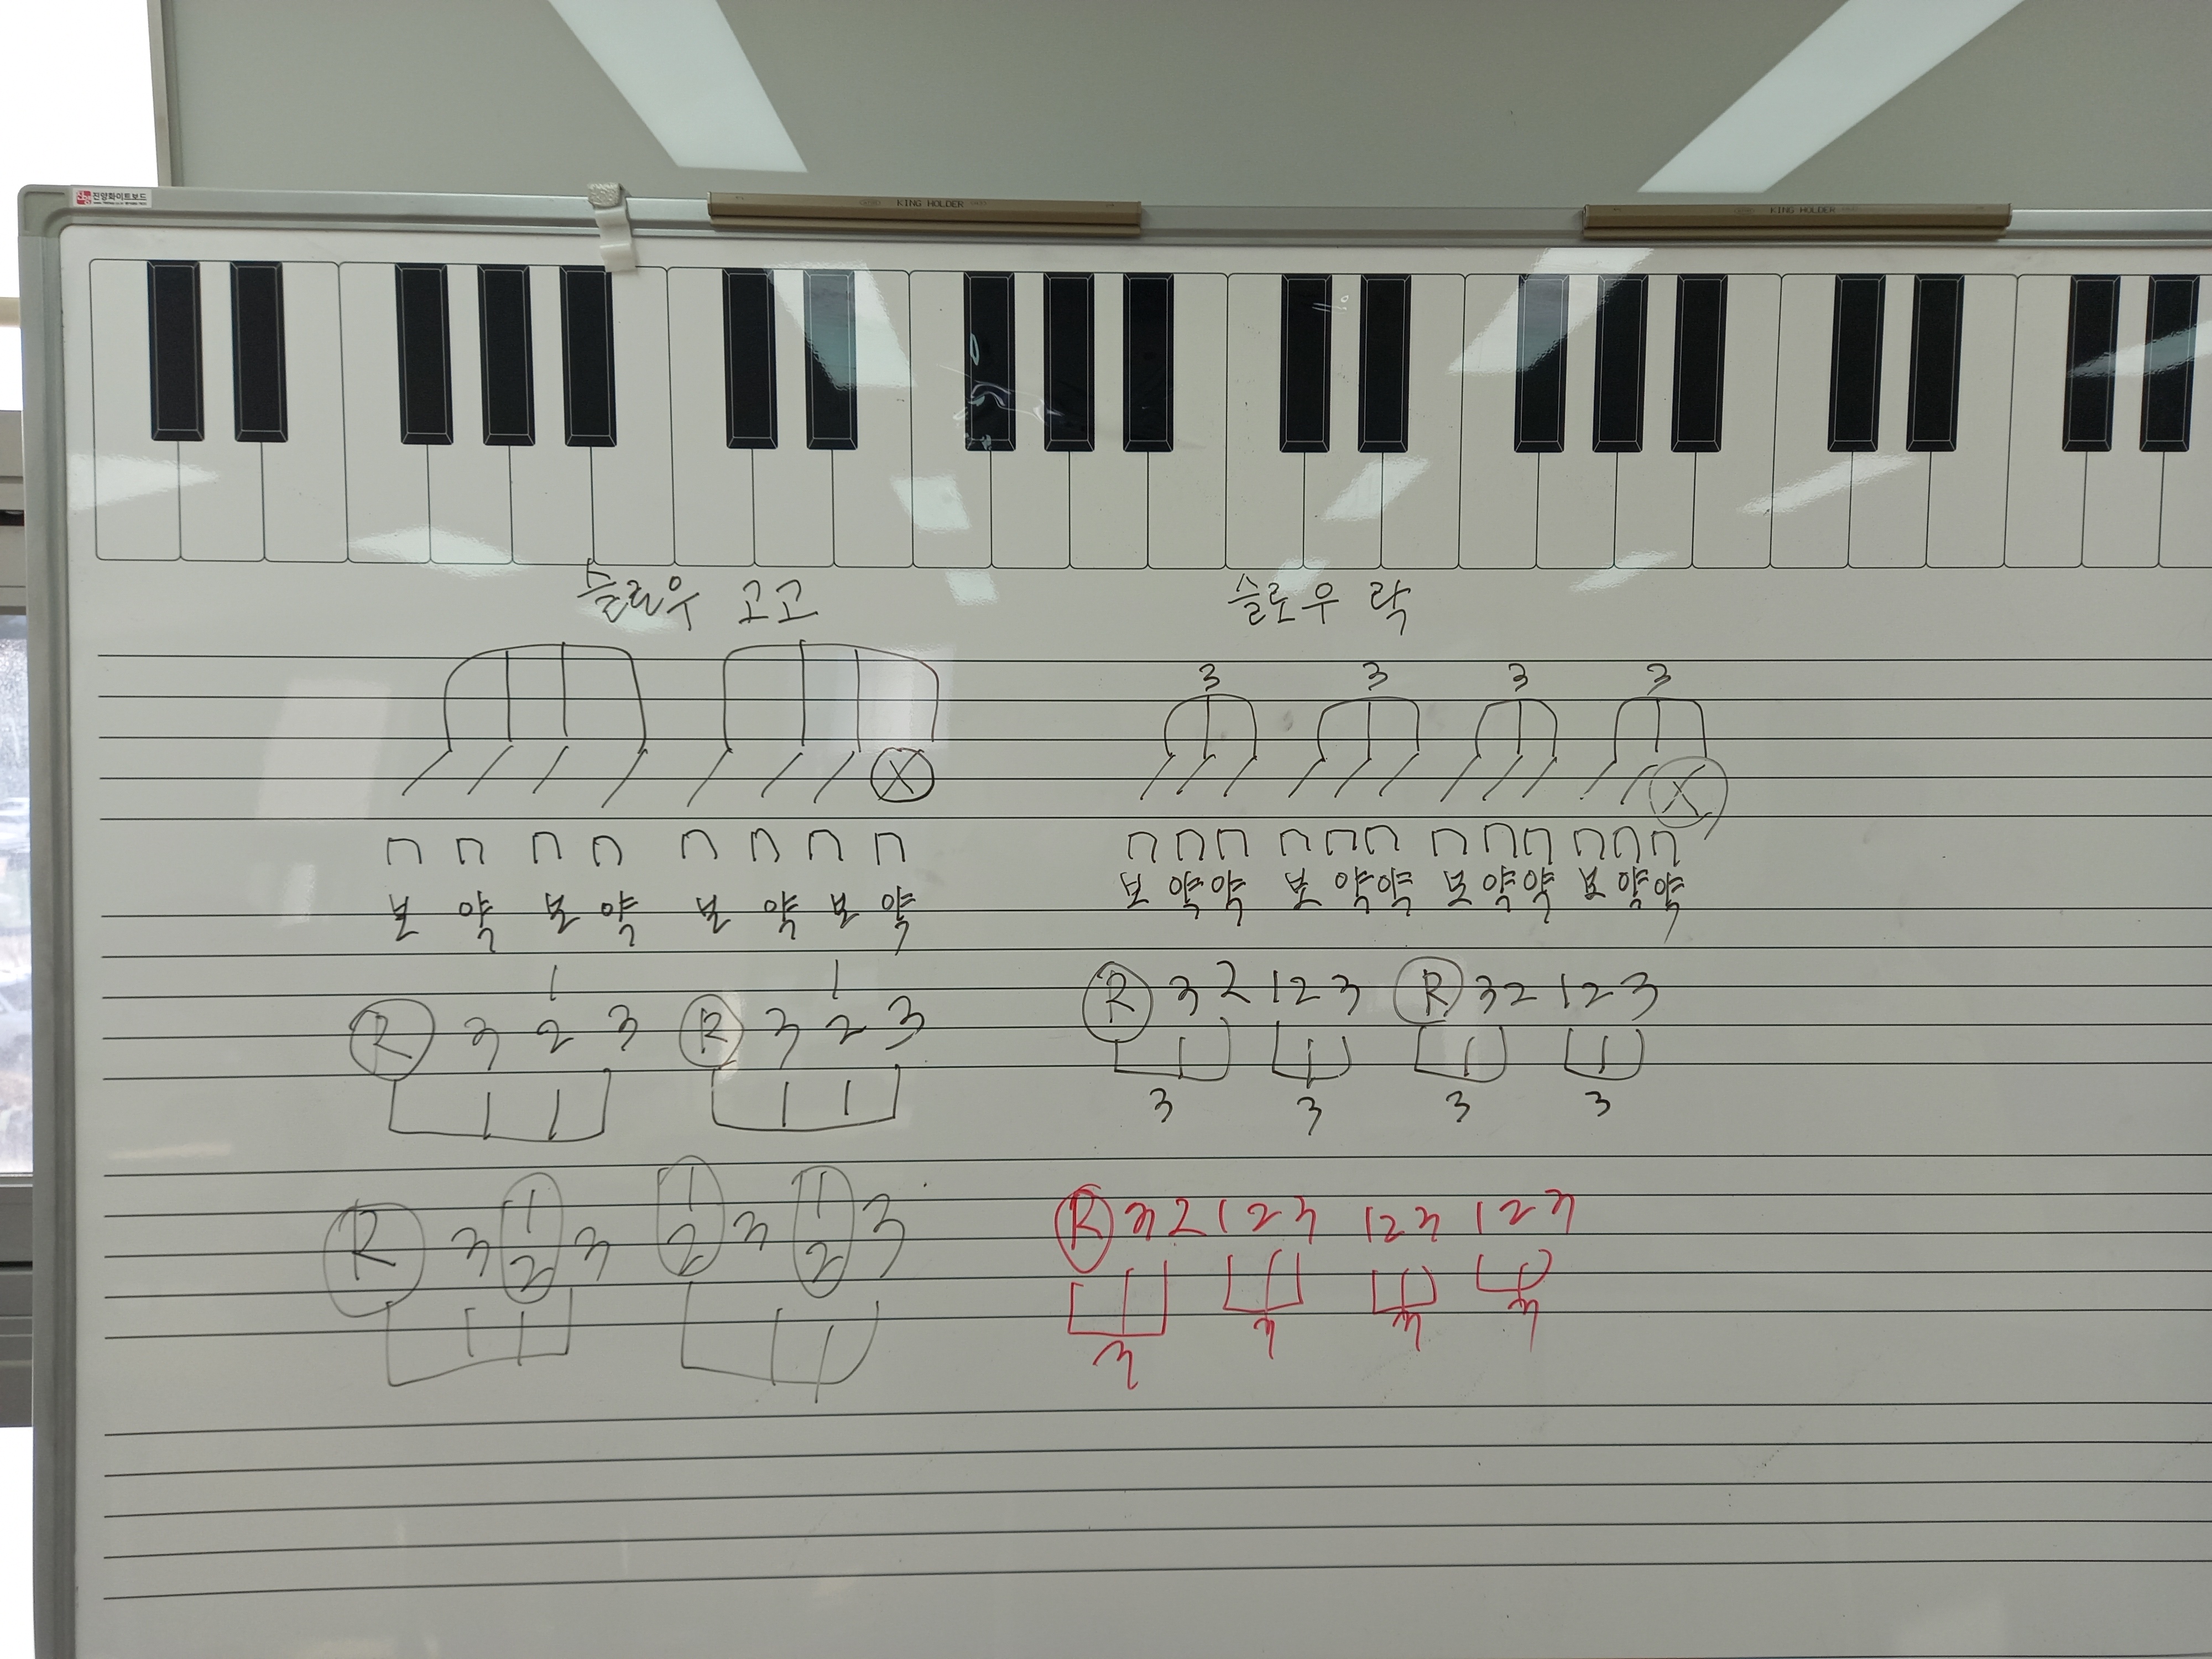 진양화이트보드
KING HOLDER
KING HOLDER
슬로우 고고
슬로우 락
3 3 3 3
X
X
보 약 보 약 보 약 보 약
보 약약 보 약약 보 약약 보 약약
1 1
R 3 2 3 R 3 2 3
R 3 2 1 2 3 R 3 2 1 2 3
3 3 3 3
1 1 1
R 3 2 3 2 3 2 3
R 3 2 1 2 3 1 2 3 1 2 3
3 3 3 3